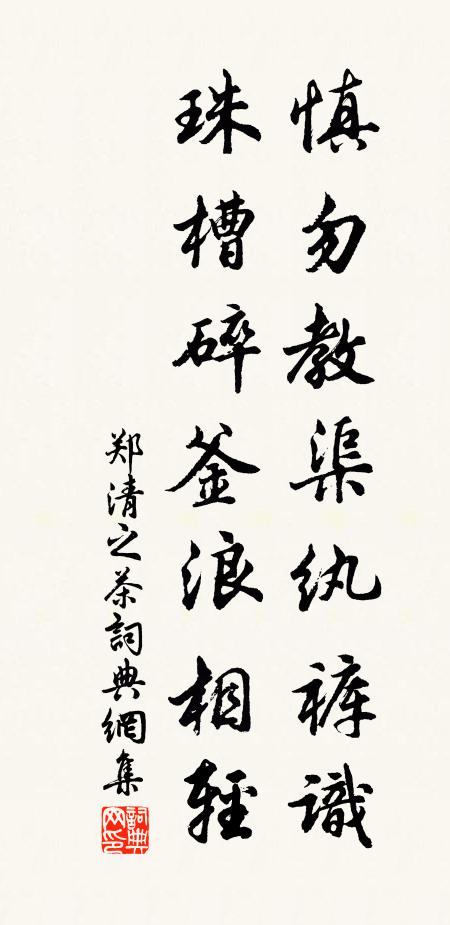 慎勿教渠纨裤識
珠槽碎釜浪相輕
郑清之茶詞典網集
詞典网印